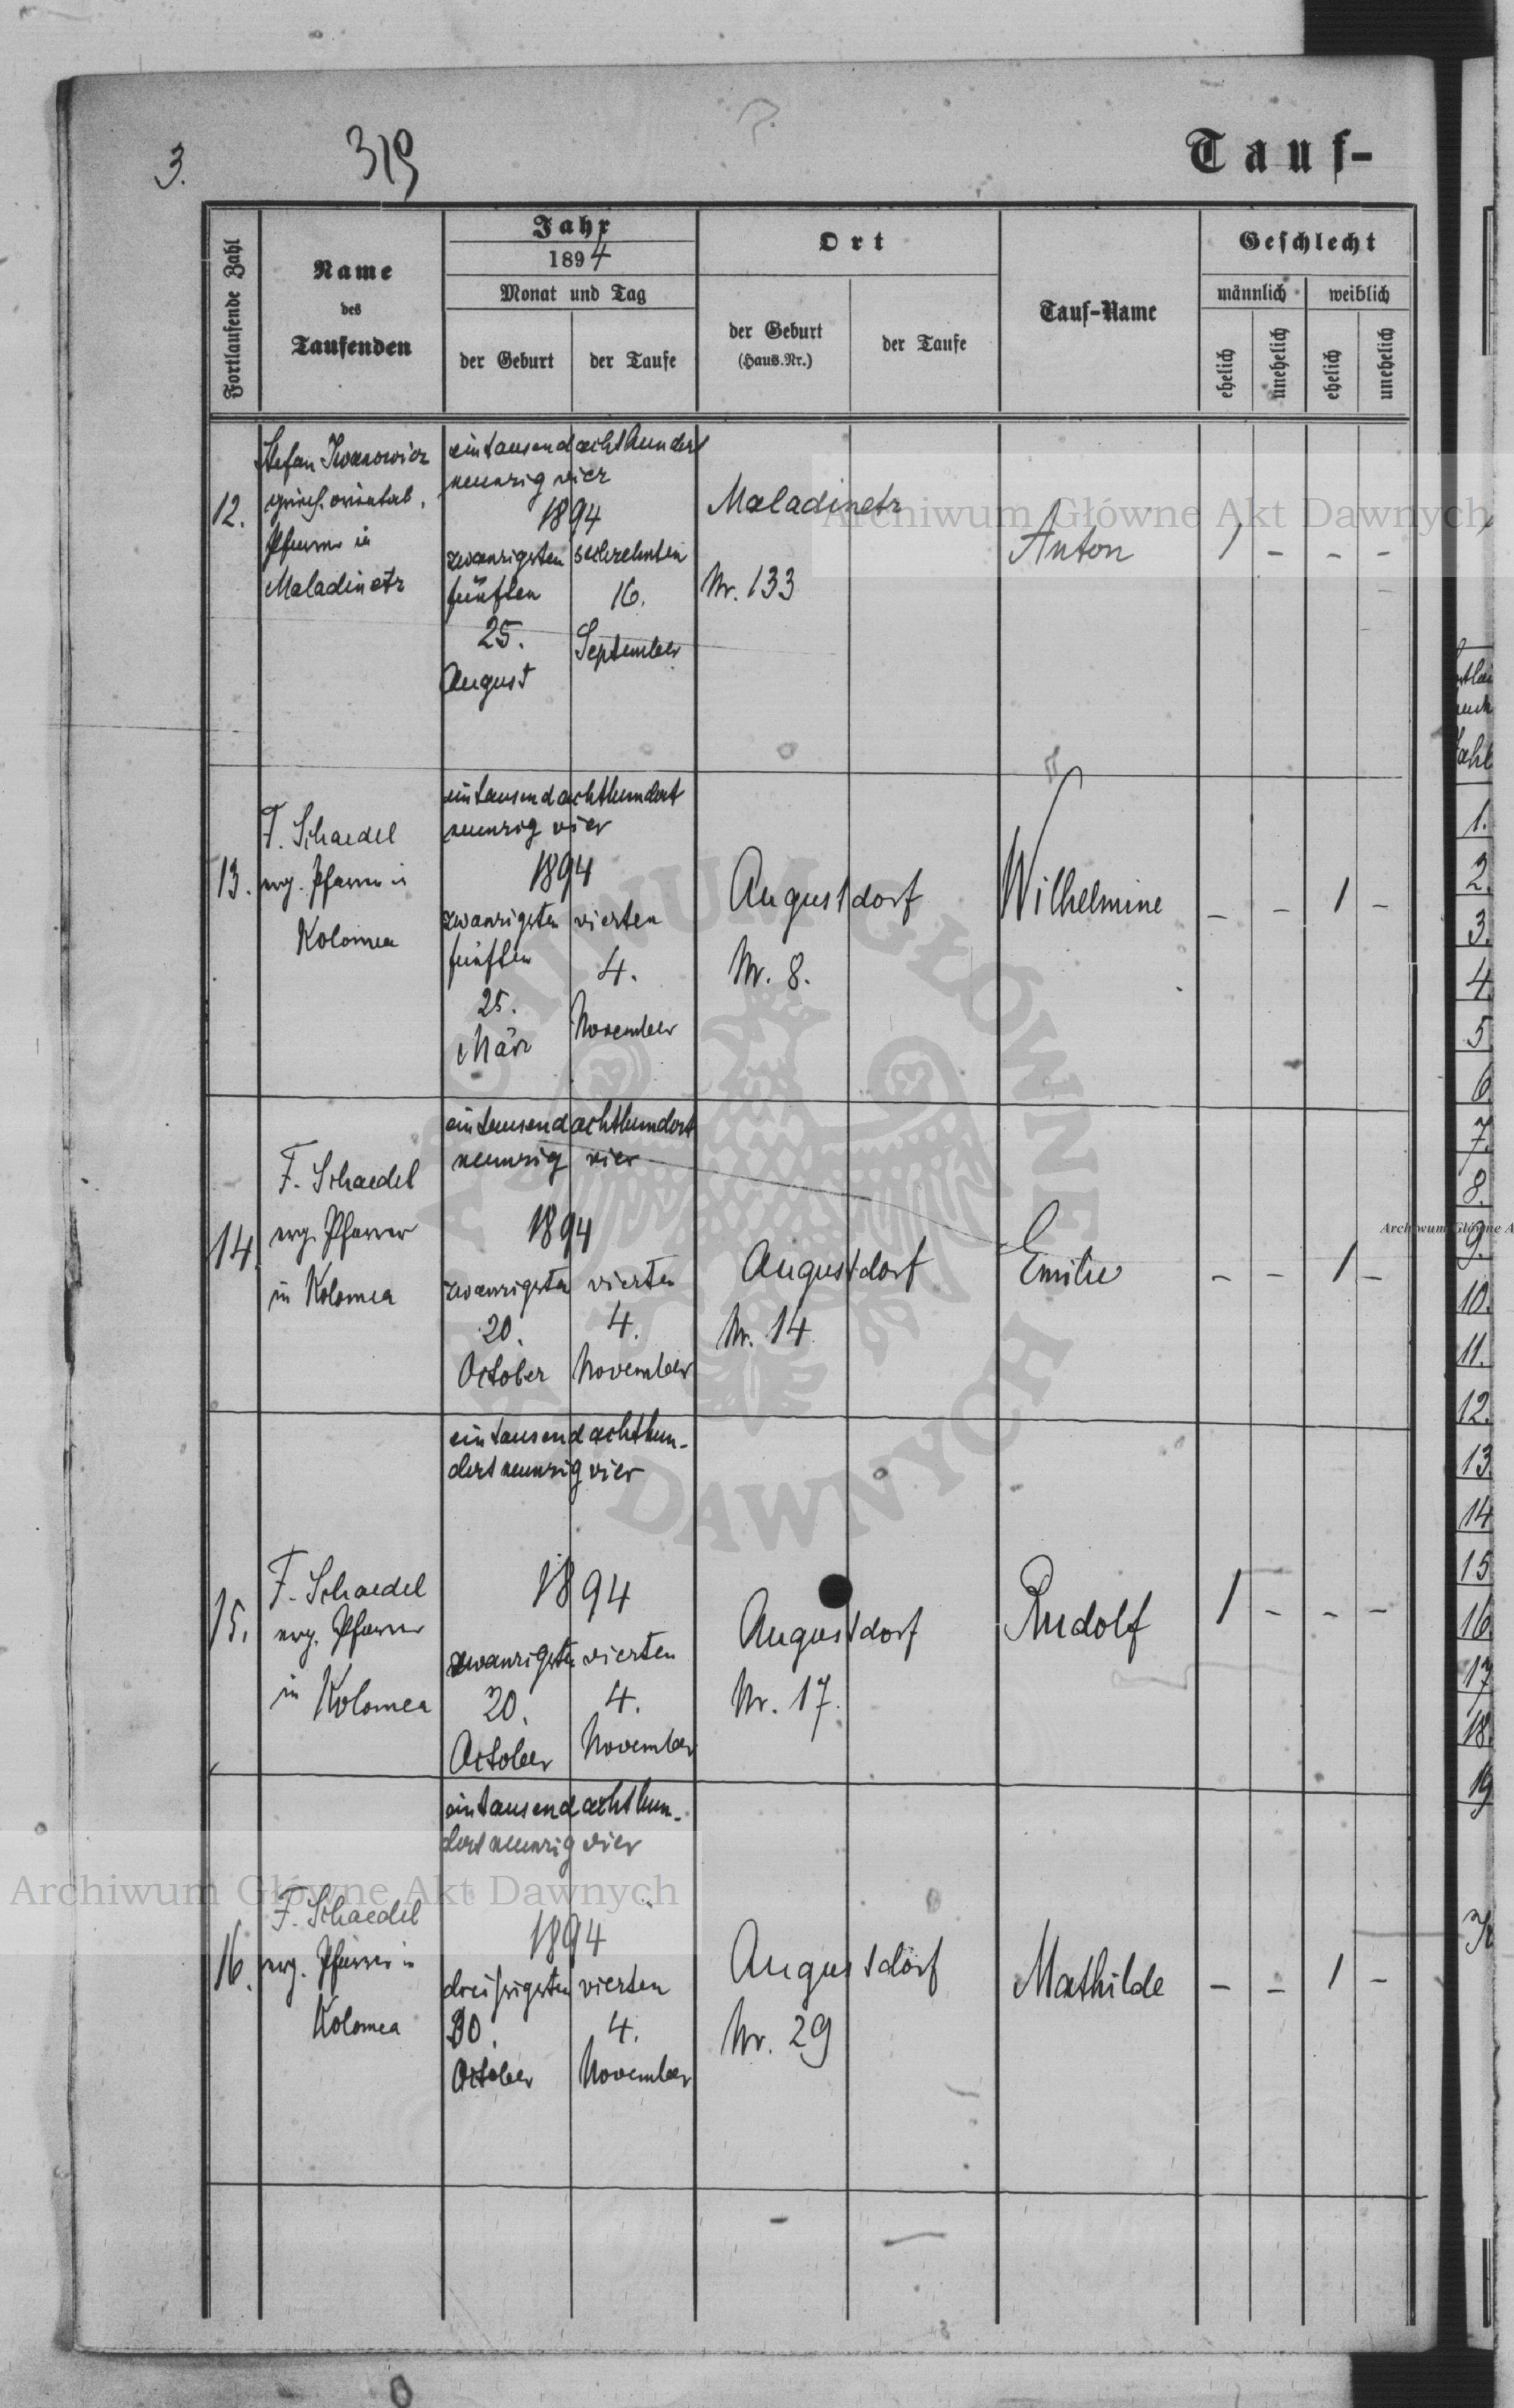 3.
319
Tauf-
Fortlaufende Zahl
Name
des
Taufenden
Jahr
1894
Monat und Tag
der Geburt
der Taufe
Ort
der Geburt
(Haus.Nr.)
der Taufe
Tauf-Name
Geschlecht
männlich
weiblich
ehelich
unehelich
ehelich
unehelich
12.
Stefan Iwanowicz
griech. oriental.
Pfarrer in
Maladinetz
eintausendachthundert
neunzig vier
1894
zwanzigsten
fünften
25.
August
sechzehnten
16.
September
Maladinetz
Nr. 133
Anton
1 - - -
13.
F. Schaedel
evg. Pfarrer in
Kolomea
eintausendachthundert
neunzig vier
1894
zwanzigsten
fünften
25.
März
vierten
4.
November
Augustdorf
Nr. 8.
Wilhelmine
- - 1 -
14.
F. Schaedel
evg. Pfarrer
in Kolomea
eintausendachthundert
neunzig vier
1894
zwanzigsten
20.
October
vierten
4.
November
Augustdorf
Nr. 14
Emilie
- - 1 -
15.
F. Schaedel
evg. Pfarrer
in Kolomea
eintausendachthun-
dert neunzig vier
1894
zwanzigsten
20.
October
vierten
4.
November
Augustdorf
Nr. 17.
Rudolf
1 - - -
16.
F. Schaedel
evg. Pfarrer in
Kolomea
eintausendachthun-
dert neunzig vier
1894
dreissigsten
30.
October
vierten
4.
November
Augustdorf
Nr. 29
Mathilde
- - 1 -
1.
2.
3.
4.
5
6.
7.
8.
9.
10.
11.
12.
13
14
15
16
17
18.
19
Archiwum Główne Akt Dawnych
Archiwum Główne Akt Dawnych
ARCHIWUM GŁÓWNE AKT DAWNYCH
Archiwum Główne A